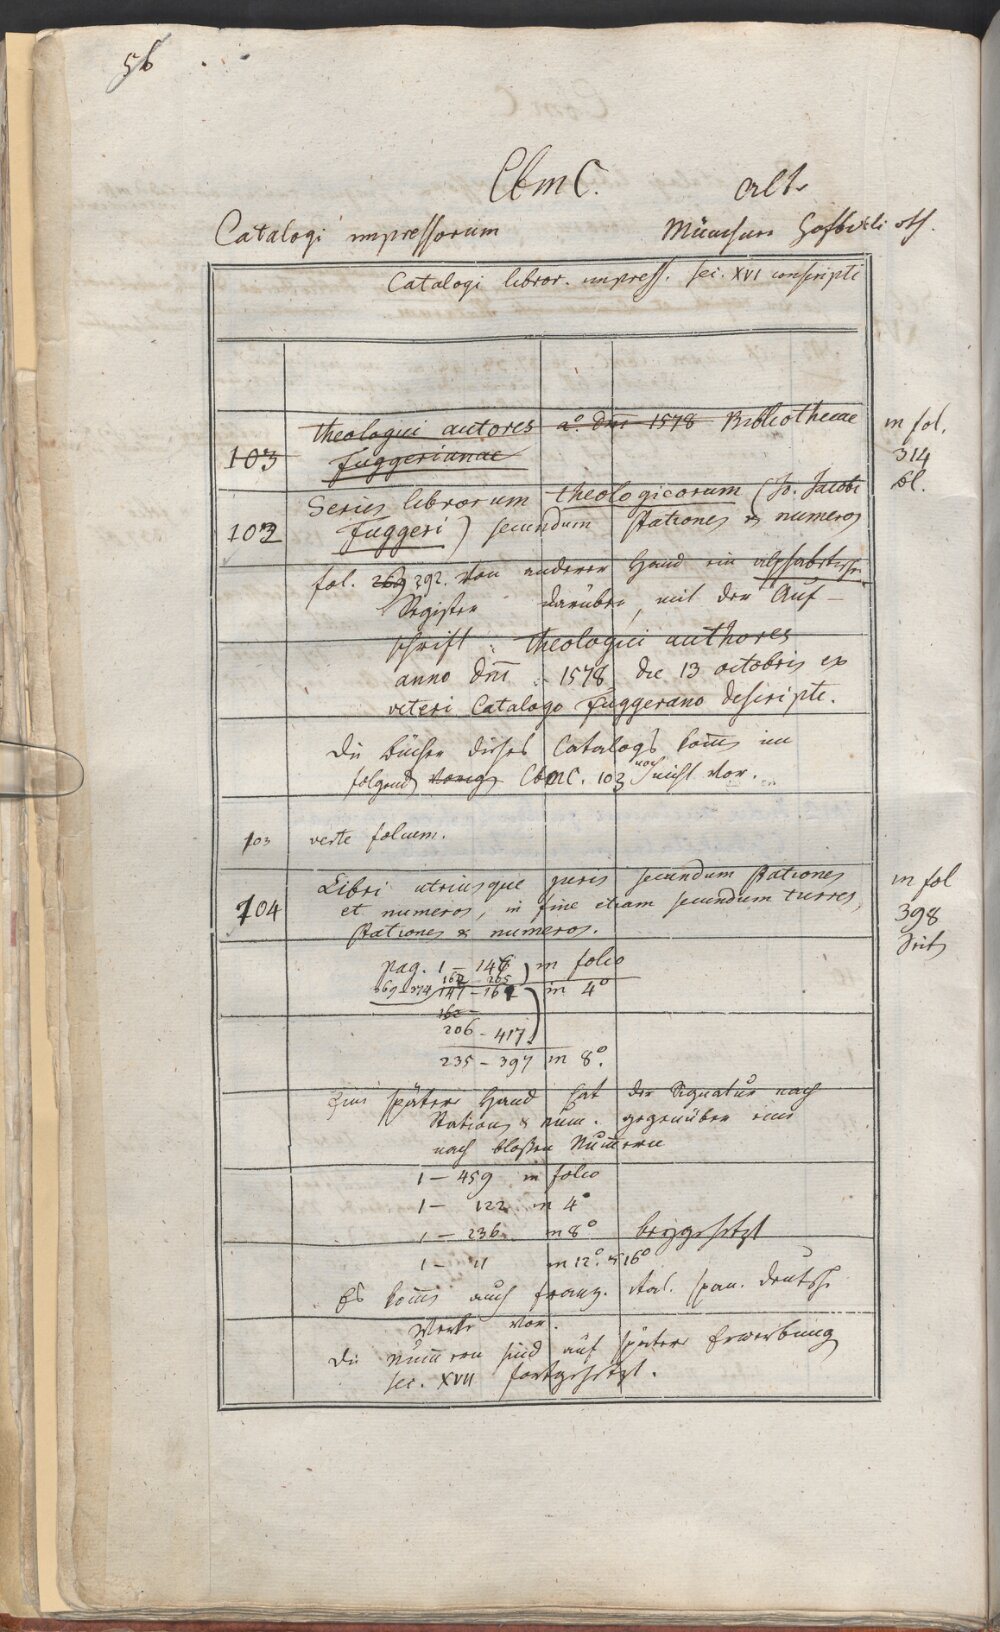 56
CbmC. alte
Catalogi impressorum Münchner Hofbiblioth.
Catalogi libror. impress. sec. XVI conscripti
theologici autores aº. dni 1578 Bibliothecae in fol.
103 Fuggerianae 314
bl.
Series librorum theologicorum (Jo. Jacobi
102 Fuggeri) secundum stationes & numeros
fol. 269 292. von anderer Hand ein alphabetisches
Register darüber, mit der Auf-
schrift: theologici authores
anno Dm̅i: 1578 die 13 octobris ex
veteri Catalogo Fuggerano descripti.
Die Bücher dieses Catalogs kom̅en im
folgend vorig CbmC. 103 noch nicht vor.
103 verte folium.
Libri utriusque juris secundum stationes in fol
104 et numeros, in fine etiam secundum turres, 398
stationes & numeros. Seiten
pag. 1 – 146 in folio
162 – 205
369–374 147 – 161 in 4º
162 –
206 – 417
235 – 397 in 8º.
Eine spätere Hand hat der Signatur nach
Stations & num. gegenüber eine
nach bloßen Num̅ern
1 – 459 in folio
1 – 122 in 4º
1 – 236 in 8º beygesetzt
1 – 11 in 12º. & 16º
Es kom̅en auch franz. ital. span. deutsche
Werke vor.
Die Num̅ern sind auf spätere Erwerbung
sec. XVII fortgesetzt.